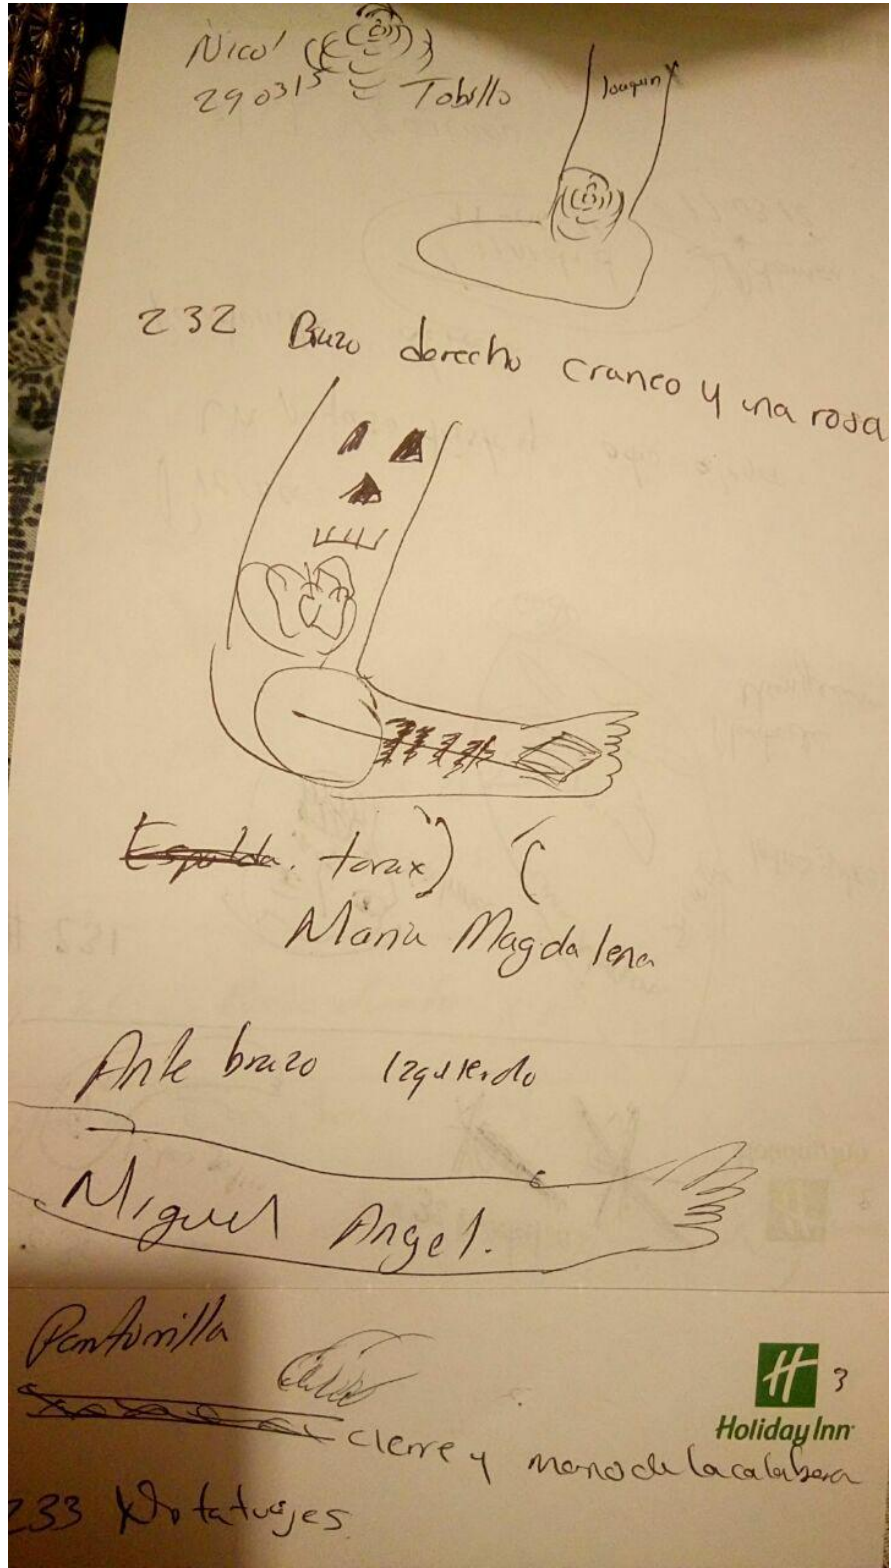 Nicol
290315 Tobillo
Joaquin
232 Brazo derecho craneo y una rosa
Espalda. torax
Maria Magdalena
Ante brazo Izquierdo
Miguel Angel.
Pantorrilla
3
Holiday Inn
cierre y mano de la calabera
233 No tatuajes